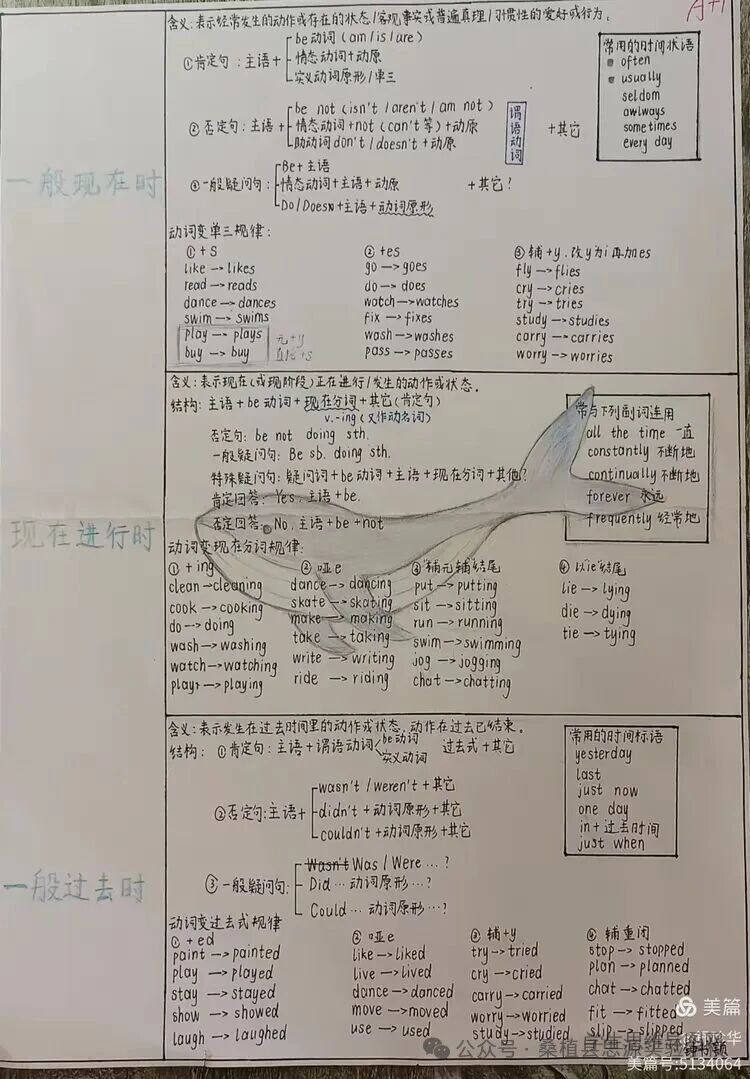 A+1
含义：表示经常发生的动作或存在的状态/客观事实或普遍真理/习惯性的爱好或行为。
be动词（am/is/are）
①肯定句：主语+ 情态动词+动原
实义动词原形/单三
常用的时间状语
often
usually
seldom
awlways
sometimes
every day
be not (isn't/aren't/am not)
②否定句：主语+ 情态动词+not(can't等)+动原
助动词don't/doesn't+动原
谓语动词
+其它
一般现在时
Be+主语
③一般疑问句： 情态动词+主语+动原 +其它？
Do/Does+主语+动词原形
动词变单三规律：
①+s ②+es ③辅+y.改y为i再加es
like→likes go→goes fly→flies
read→reads do→does cry→cries
dance→dances watch→watches try→tries
swim→swims fix→fixes study→studies
play→plays 元+y wash→washes carry→carries
buy→buy 直接+s pass→passes worry→worries
含义：表示现在(或现阶段)正在进行/发生的动作或状态。
结构：主语+be动词+现在分词+其它(肯定句)
v.-ing(又作动名词)
否定句：be not doing sth.
一般疑问句：Be sb. doing sth.
特殊疑问句：疑问词+be动词+主语+现在分词+其他？
肯定回答：Yes，主语+be.
否定回答：No，主语+be+not
常与下列副词连用
all the time 一直
constantly 不断地
continually 不断地
forever 永远
frequently 经常地
现在进行时
动词变现在分词规律：
①+ing ②哑e ③"辅元辅"结尾 ④以"ie"结尾
clean→cleaning dance→dancing put→putting lie→lying
cook→cooking skate→skating sit→sitting die→dying
do→doing make→making run→running tie→tying
wash→washing take→taking swim→swimming
watch→watching write→writing jog→jogging
play→playing ride→riding chat→chatting
含义：表示发生在过去时间里的动作或状态，动作在过去已结束。
结构：①肯定句：主语+谓语动词 be动词 实义动词 过去式+其它
常用的时间标语
yesterday
last
just now
one day
in+过去时间
just when
wasn't/weren't+其它
②否定句：主语+ didn't+动词原形+其它
couldn't+动词原形+其它
Wasn't Was/Were…？
③一般疑问句： Did…动词原形…？
Could…动词原形…？
一般过去时
动词变过去式规律
①+ed ②哑e ③辅+y ④辅重闭
paint→painted like→liked try→tried stop→stopped
play→played live→lived cry→cried plan→planned
stay→stayed dance→danced carry→carried chat→chatted
show→showed move→moved worry→worried fit→fitted
laugh→laughed use→used study→studied slip→slipped
美篇
公众号·桑植县
美篇号:5134064